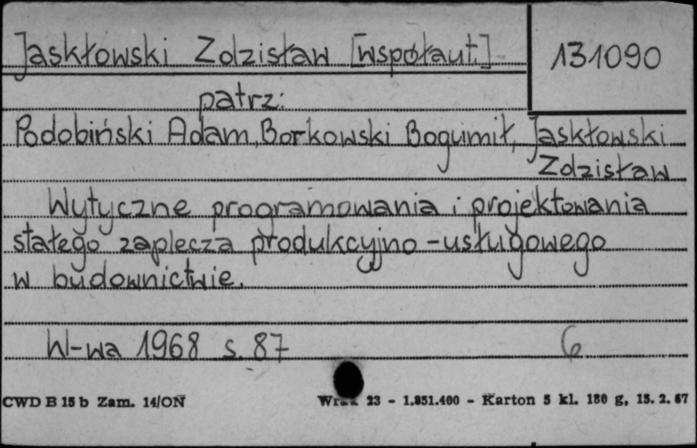 Jaskłowski Zdzisław [współaut.] 131090
patrz:
Podobiński Adam, Borkowski Bogumił, Jaskłowski
Zdzisław
Wytyczne programowania i projektowania
stałego zaplecza produkcyjno-usługowego
w budownictwie.
W-wa 1968 s. 87 6
CWD B 15 b Zam. 14/ON 23 - 1.851.400 - Karton 5 kl. 180 g, 15. 2. 67